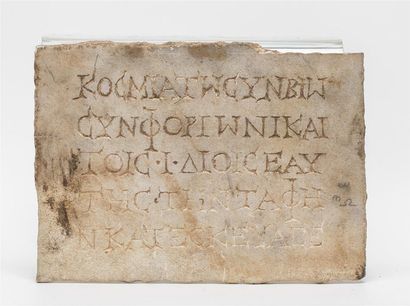 ΚΟCΜΙΑΤΩCΥΝΒΙΩ
CΥΝΦΟΡΙΩΝΙΚΑΙ
ΤΟΙC·Ι·ΔΙΟΙCΕΑΥ
ΤΗC·ΤΗΝΤΑΦΗ
ΝΚΑΤΕCΚΕΥΑCΕ